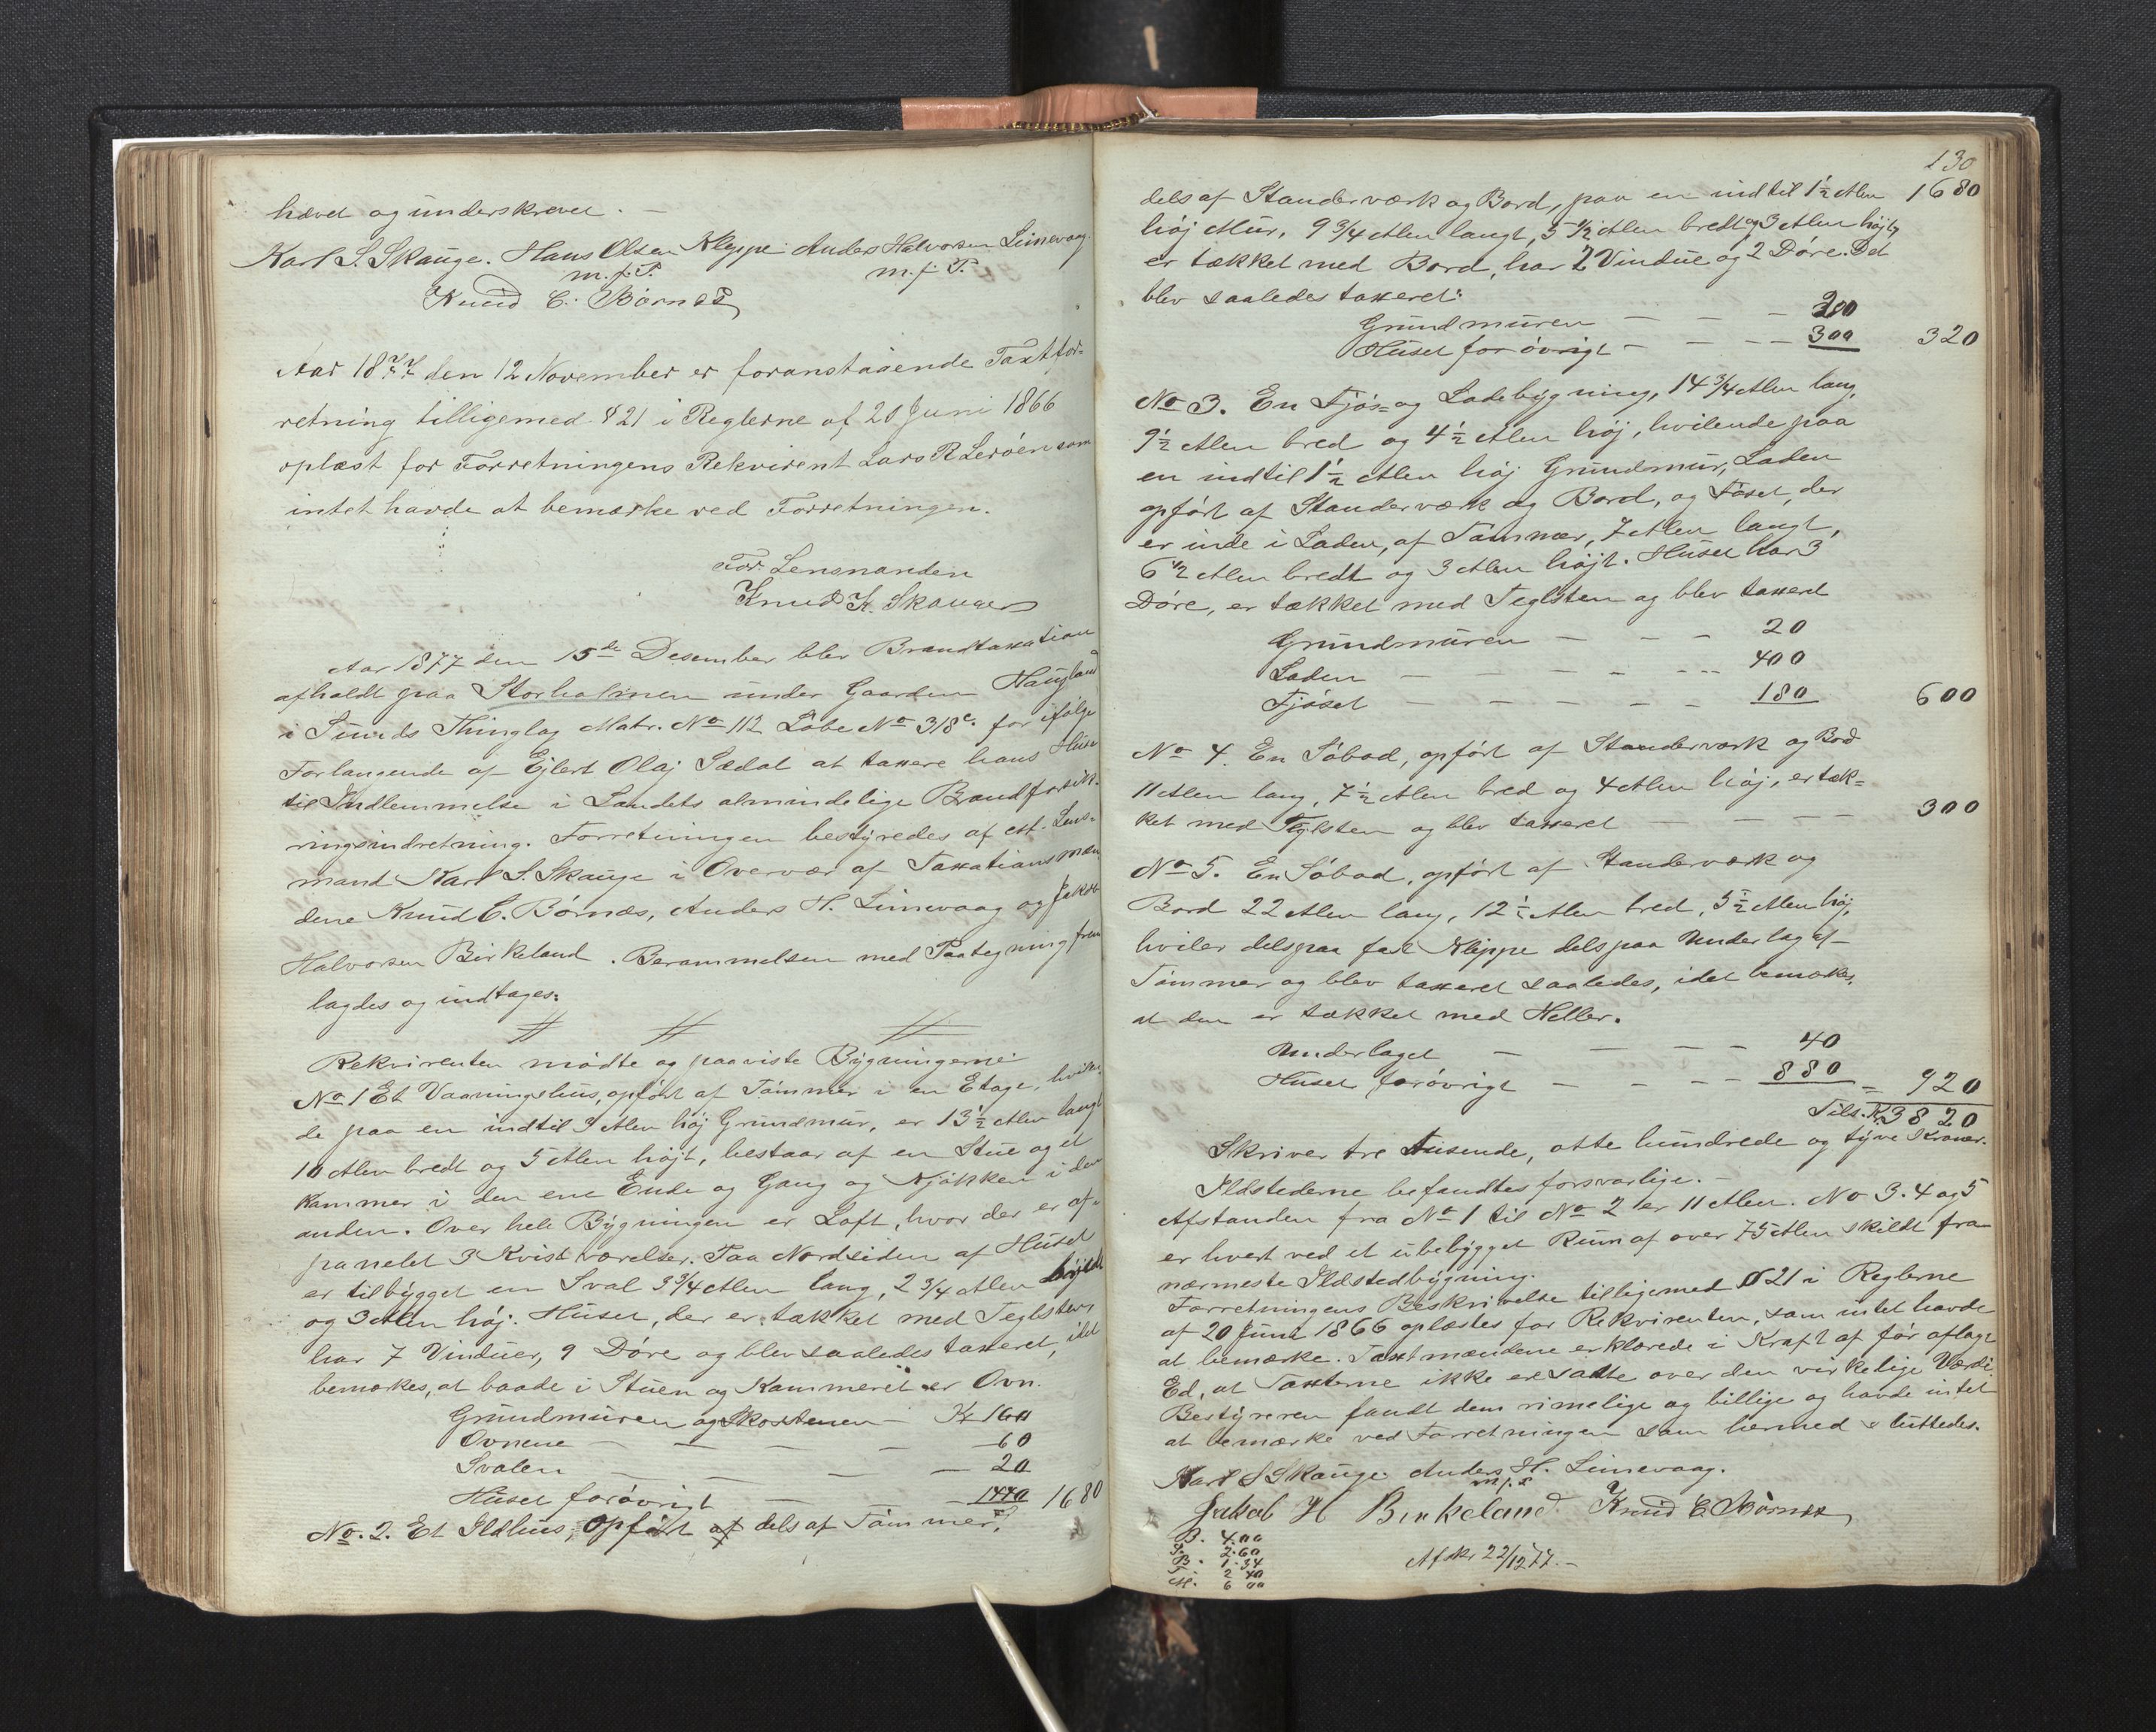 hævet og underskrevet. —
Karl S. Skauge. Hans Olsen Kleppe Anders Halvorsen Limevaag.
m. f. P. m. f. P.
Knud C. Børnes
Aar 1877 den 12 November er foranstaaende Taxtfor=
retning tilligemed § 21 i Reglerne af 20 Juni 1866
oplæst for Forretningens Rekvirent Lars R Lerøen som
intet havde at bemærke ved Forretningen.
For Lensmanden
Knud K. Skauge
Aar 1877 den 15de Desember blev Brandtaxation
afholdt paa Storholmen under Gaarden Haugland
i Sunds Thinglag Matr. No 112 Løbe No 318c. for ifølge
Forlangende af Ejlert Olaj Sædal at taxere hans Huse
til Indlemmelse i Landets almindelige Brandforsik-
ringsindretning. Forretningen bestyredes af cst. Lens=
mand Karl S. Skauge i Overvær af Taxationsmæn
dene Knud C. Børnæs, Anders H. Limevaag og Jakob
Halvorsen Birkeland. Berammelsen med Paategning frem
lagdes og indtages:
# # #
Rekvirenten mødte og paaviste Bygningerne:
No 1 Et Vaaningshus, opført af Tømmer i en Etage, hvilen
de paa en indtil 3 Alen høj Grundmur, er 13½ Alen langt
10 Alen bredt og 5 Alen højt, bestaar af en Stue og et
Kammer i den ene Ende og Gang og Kjøkken i den
anden. Over hele Bygningen er Loft, hvor der er af-
panelet 3 Kvistværelser. Paa Nordsiden af Huset
er tilbygget en Sval 3 3/4 Alen lang, 2 3/4 Alen
og 3 Alen høj. Huset, der er tækket med Teglsten,
har 7 Vinduer, 9 Døre og blev saaledes taxeret, idet
bemærkes, at baade i Stuen og Kammeret er Ovn.
Grundmuren og Skorstenen — Kr 160
Ovnene — — — — 60
Svalen — — — — 20
Huset forøvrigt — — 1440 1680
No. 2. Et Ildhus, opført af dels af Tømmer,
130
dels af Standerværk og Bord, paa en indtil 1½ Alen 1680
høj Mur, 9 3/4 Alen langt, 5 1/2 Alen bredt og 3 Alen højt,
er tækket med Bord, har 2 Vindue og 2 Døre. Det
blev saaledes taxeret:
Grundmuren — — — 20
Huset forøvrigt — — — 300 320
No 3. En Fjøs= og Ladebygning, 14 3/4 Alen lang,
9½ Alen bred og 4½ Alen høj, hvilende paa
en indtil 1½ Alen høj Grundmur, Laden
opført af Standerværk og Bord, og Fjøset, der
er inde i Laden, af Tømmer, 7 Alen langt,
6 1/2 Alen bredt og 3 Alen højt. Huset har 3
Døre, er tækket med Teglsten og blev taxeret
Grundmuren — — — 20
Laden — — — — — 400
Fjøset — — — — — 180 600
No 4. En Søbod, opført af Standerværk og Bord
11 Alen lang, 7½ Alen bred og 4 Alen høj, er tæk=
ket med Teglsten og blev taxeret — — — — 300
No 5. En Søbod, opført af Standerværk og
Bord 22 Alen lang, 12½ Alen bred, 5½ Alen høj,
hviler dels paa fast Klippe dels paa Underlag af
Tømmer og blev taxeret saaledes, idet bemærkes,
at den er tækket med Heller.
Underlaget — — — — 40
Huset forøvrigt — — — — 880 = 920
Tils. Kr 3820
Skriver tre tusende, otte hundrede og tyve Kroner.
Ildstederne befandtes forsvarlige. —
Afstanden fra No 1 til No 2 er 11 Alen. No 3. 4 og 5
er hvert ved et ubebygget Rum af over 75 Alen skildt fra
nærmeste Ildstedbygning.
Forretningens Beskrivelse tilligemed § 21 i Reglerne
af 20 Juni 1866 oplæstes for Rekvirenten, som intet havde
at bemærke. Taxtmændene erklærede i Kraft af før aflagt
Ed, at Taxterne ikke ere satte over den virkelige Værdi.
Bestyreren fandt dem rimelige og billige og havde intet
at bemærke ved Forretningen som hermed sluttedes.
Karl S Skauge. Anders H. Limevaag.
m. f. P.
Jakob H Birkeland Knud C Børnes
B. 4.00
S. 2.60
B. 1.34
T. 2 40
M. 6 00
Afskr 22/12 77. —